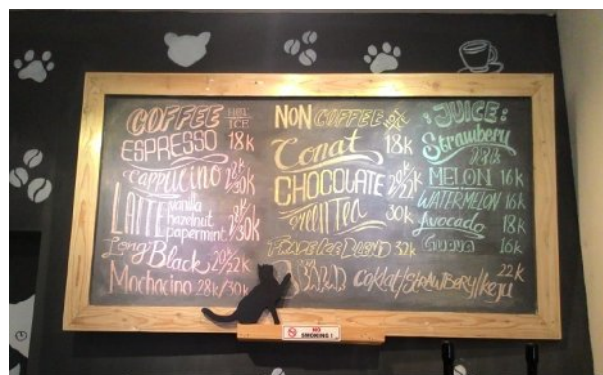 COFFEE HOT ICE
ESPRESSO 18K
Cappucino 28K/30K
LATTE vanilla hazelnut papermint 28K/30K
Long Black 20/22K
Mochacino 28K/30K
NON COFFEE
Conat 18K
CHOCOLATE 20K/22K
Green Tea 30K
FRAPE ICE BLEND 32K
Coklat/STRAWBERY/keju 22K
JUICE:
Strawbery 18K
MELON 16K
WATERMELON 16K
Avocado 18K
GUAVA 16K
NO SMOKING!